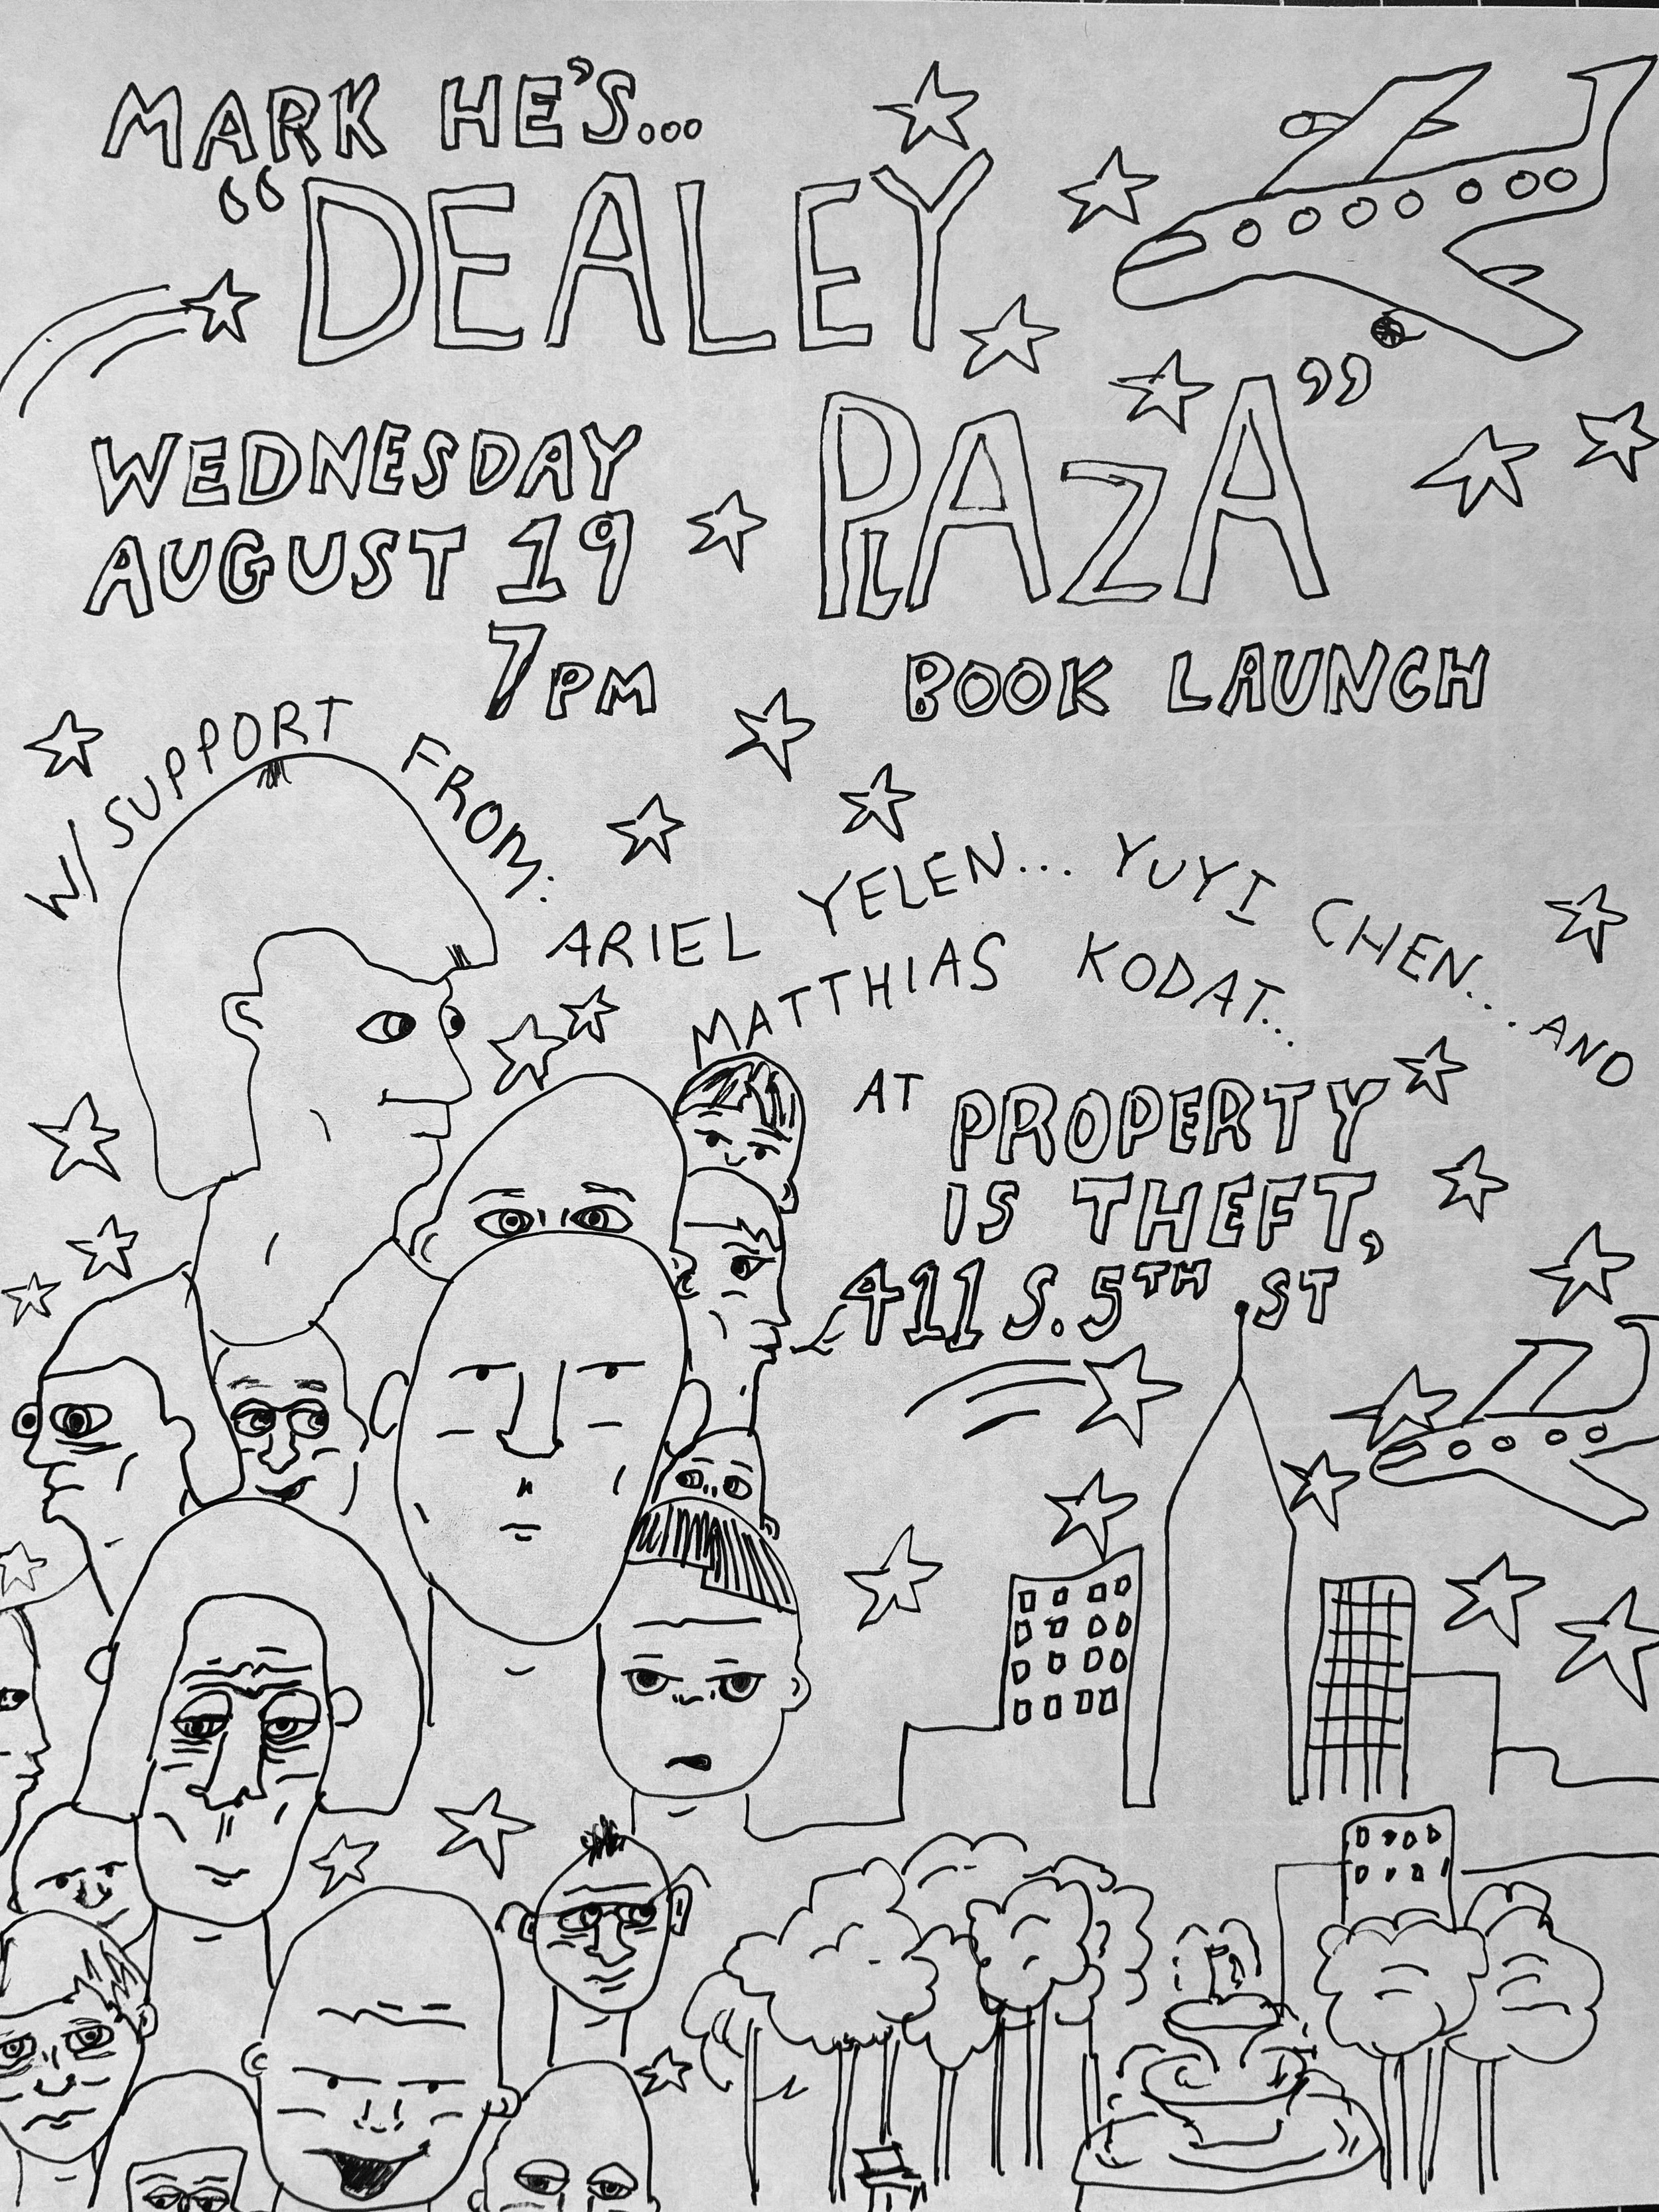 MARK HE'S...
"DEALEY
PLAZA"
WEDNESDAY
AUGUST 19
7PM
BOOK LAUNCH
W/ SUPPORT FROM.
ARIEL YELEN... YUYI CHEN... AND
MATTHIAS KODAT...
AT PROPERTY
IS THEFT,
411 S. 5TH ST